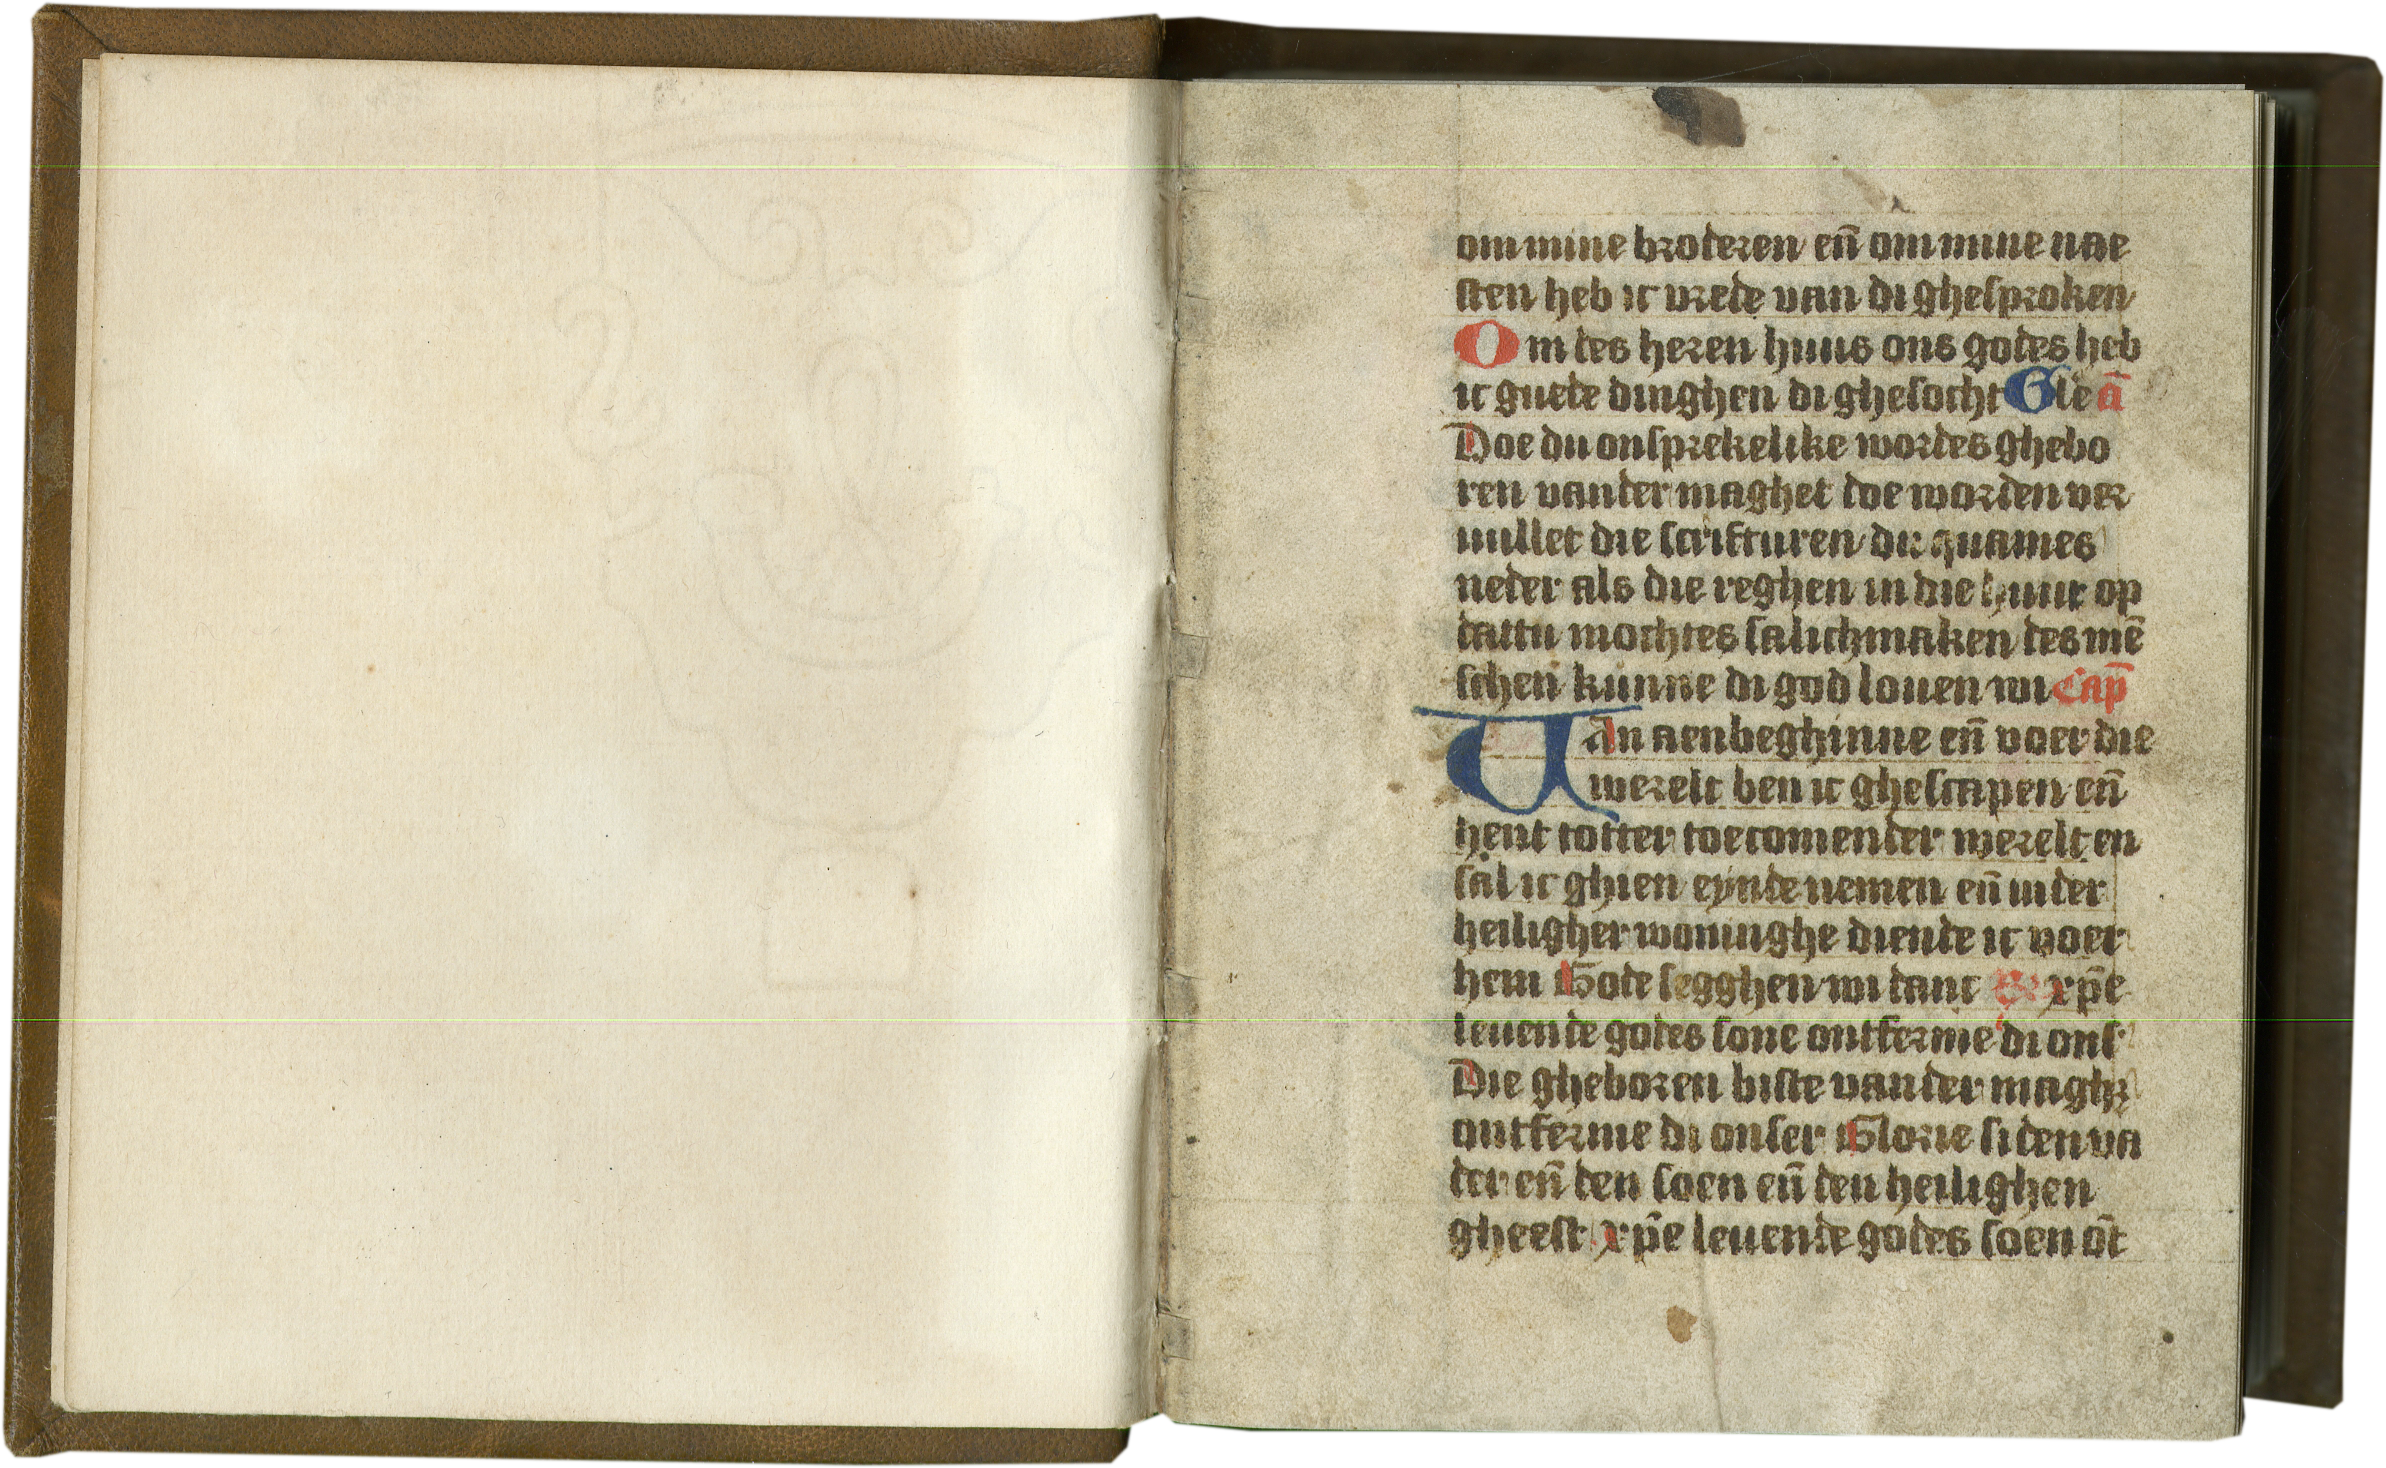 om mine broderen en̄ om mine nae
sten heb ic vrede van di ghesproken
Om des heren huus ons godes heb
ic guede dinghen di ghesocht Gle a̅
Doe du onsprekelike wordes ghebo
ren vander maghet doe worden ver
uullet die scrifturen du quames
neder als die reghen in die huut op
dattu mochtes salichmaken des mē
schen kunne di god louen wi Cap̄
VAn aenbeghinne en̄ voer die
werelt ben ic ghescapen en̄
hent totter toecomender werelt en
sal ic ghien eynde nemen en̄ in der
heiligher woninghe diende ic voer
hem Gode segghen wi danc xp̄e
leuende godes sone ontferme di ons'
Die gheboren biste vander magh
ontferme di onser Glorie si den va
der en̄ den soen en̄ den heilighen
gheest xp̄e leuende godes soen ōt